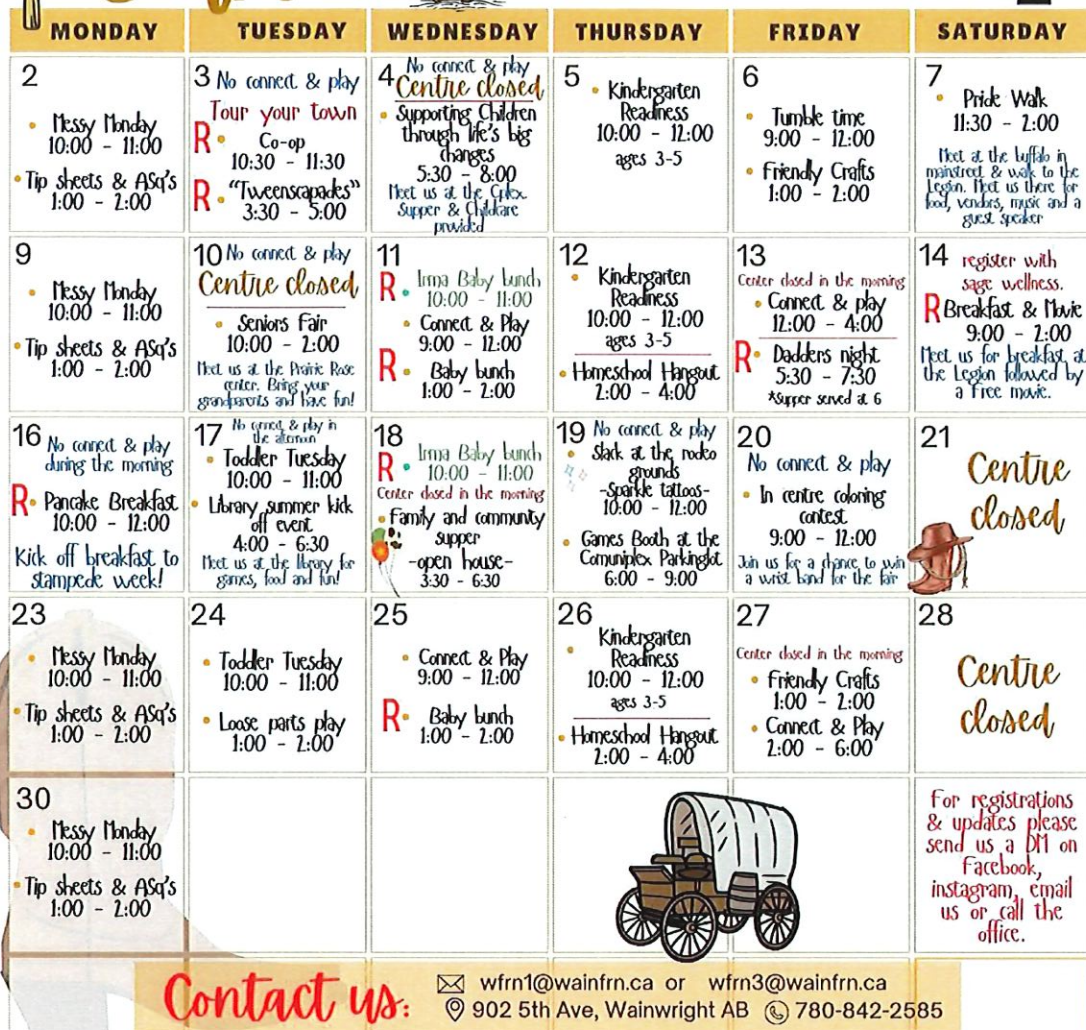 MONDAY TUESDAY WEDNESDAY THURSDAY FRIDAY SATURDAY
2
Messy Monday
10:00 - 11:00
Tip sheets & ASQ's
1:00 - 2:00
3 No connect & play
Tour your town
R Co-op
10:30 - 11:30
R "Tweenscapades"
3:30 - 5:00
4 No connect & play
Centre closed
Supporting Children
through life's big
changes
5:30 - 8:00
Meet us at the Cplex
Supper & Childcare
provided
5
Kindergarten
Readiness
10:00 - 12:00
ages 3-5
6
Tumble time
9:00 - 12:00
Friendly Crafts
1:00 - 2:00
7
Pride Walk
11:30 - 2:00
Meet at the buffalo in
mainstreet & walk to the
Legion. Meet us there for
food, vendors, music and a
guest speaker
9
Messy Monday
10:00 - 11:00
Tip sheets & ASQ's
1:00 - 2:00
10 No connect & play
Centre closed
Seniors Fair
10:00 - 2:00
Meet us at the Prairie Rose
center. Bring your
grandparents and have fun!
11
R Irma Baby bunch
10:00 - 11:00
Connect & Play
9:00 - 12:00
R Baby bunch
1:00 - 2:00
12
Kindergarten
Readiness
10:00 - 12:00
ages 3-5
Homeschool Hangout
2:00 - 4:00
13
Center closed in the morning
Connect & play
12:00 - 4:00
R Dadders night
5:30 - 7:30
*Supper served at 6
14 register with
sage wellness.
R Breakfast & Movie
9:00 - 2:00
Meet us for breakfast, at
the Legion followed by
a free movie.
16
No connect & play
during the morning
R Pancake Breakfast
10:00 - 12:00
Kick off breakfast to
stampede week!
17 No connect & play in
the afternoon
Toddler Tuesday
10:00 - 11:00
Library summer kick
off event
4:00 - 6:30
Meet us at the library for
games, food and fun!
18
R Irma Baby bunch
10:00 - 11:00
Center closed in the morning
Family and community
supper
-open house-
3:30 - 6:30
19 No connect & play
Slack at the rodeo
grounds
-Sparkle tattoos-
10:00 - 12:00
Games Booth at the
Comuniplex Parkinglot
6:00 - 9:00
20
No connect & play
In centre coloring
contest
9:00 - 12:00
Join us for a chance to win
a wrist band for the fair
21
Centre
closed
23
Messy Monday
10:00 - 11:00
Tip sheets & ASQ's
1:00 - 2:00
24
Toddler Tuesday
10:00 - 11:00
Loose parts play
1:00 - 2:00
25
Connect & Play
9:00 - 12:00
R Baby bunch
1:00 - 2:00
26
Kindergarten
Readiness
10:00 - 12:00
ages 3-5
Homeschool Hangout
2:00 - 4:00
27
Center closed in the morning
Friendly Crafts
1:00 - 2:00
Connect & Play
2:00 - 6:00
28
Centre
closed
30
Messy Monday
10:00 - 11:00
Tip sheets & ASQ's
1:00 - 2:00
For registrations
& updates please
send us a DM on
Facebook,
instagram, email
us or call the
office.
Contact us:
wfrn1@wainfrn.ca or wfrn3@wainfrn.ca
902 5th Ave, Wainwright AB 780-842-2585